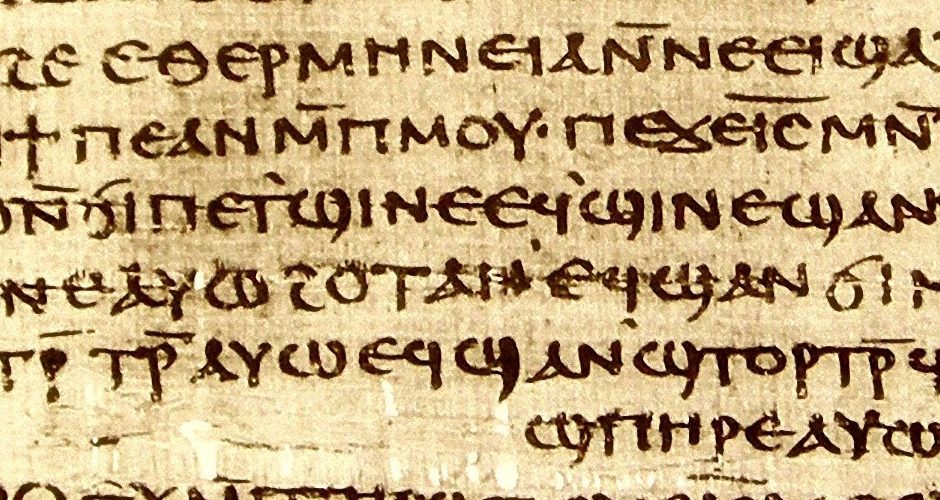 ϩⲉ ⲉⲑⲉⲣⲙⲏⲛⲉⲓⲁⲛ̄ⲛⲉⲉⲓϣⲁ
ϯⲡⲉⲁⲛⲙ̄ⲡⲙⲟⲩ· ⲡⲉϫⲉⲓ̅ⲥ̅ⲙⲛ̄
ⲛ̄ϭⲓⲡⲉⲧ`ϣⲓⲛⲉⲉϥ`ϣⲓⲛⲉϣⲁⲛ
ⲛⲉⲁⲩⲱϩⲟⲧⲁⲛ`ⲉϥϣⲁⲛϭⲓⲛ
ⲧⲣ̄ⲧⲣ̄ⲁⲩⲱⲉϥϣⲁⲛ`ϣⲧⲟⲣⲧⲣ̄ϥ
ϣⲡⲏⲣⲉⲁⲩⲱ